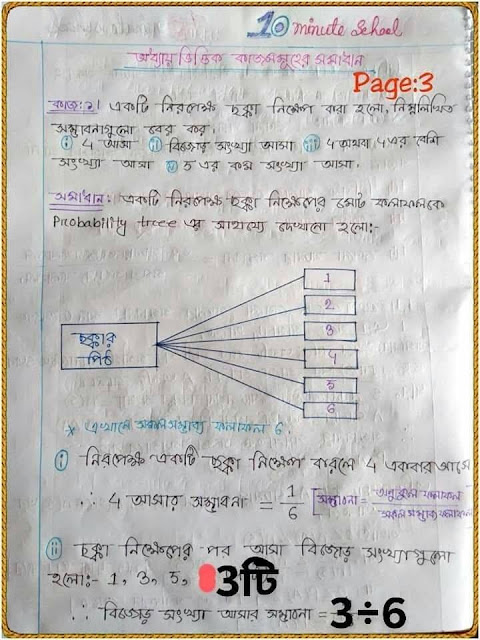 10 minute School
অধ্যায় ভিত্তিক কাজসমূহের সমাধান
Page:3
কাজ:১। একটি নিরপেক্ষ ছক্কা নিক্ষেপ করা হলো, নিম্নলিখিত
সম্ভাবনাগুলো বের কর।
i 4 আসা ii বিজোড় সংখ্যা আসা iii 4 অথবা 4 এর বেশি
সংখ্যা আসা iv 5 এর কম সংখ্যা আসা.
সমাধান: একটি নিরপেক্ষ ছক্কা নিক্ষেপের মোট ফলাফলকে
Probability tree এর সাহায্যে দেখানো হলো:-
1
2
3
ছক্কার
পিঠ
4
5
6
* এখানে সকল সম্ভাব্য ফলাফল 6.
i নিরপেক্ষ একটি ছক্কা নিক্ষেপ করলে 4 একবার আসে
∴ 4 আসার সম্ভাবনা = 1/6 [সম্ভাবনা = অনুকূল ফলাফল/সকল সম্ভাব্য ফলাফল
ii ছক্কা নিক্ষেপের পর আসা বিজোড় সংখ্যাগুলো
হলো:- 1, 3, 5, 3টি
∴ বিজোড় সংখ্যা আসার সম্ভাবনা = 3÷6